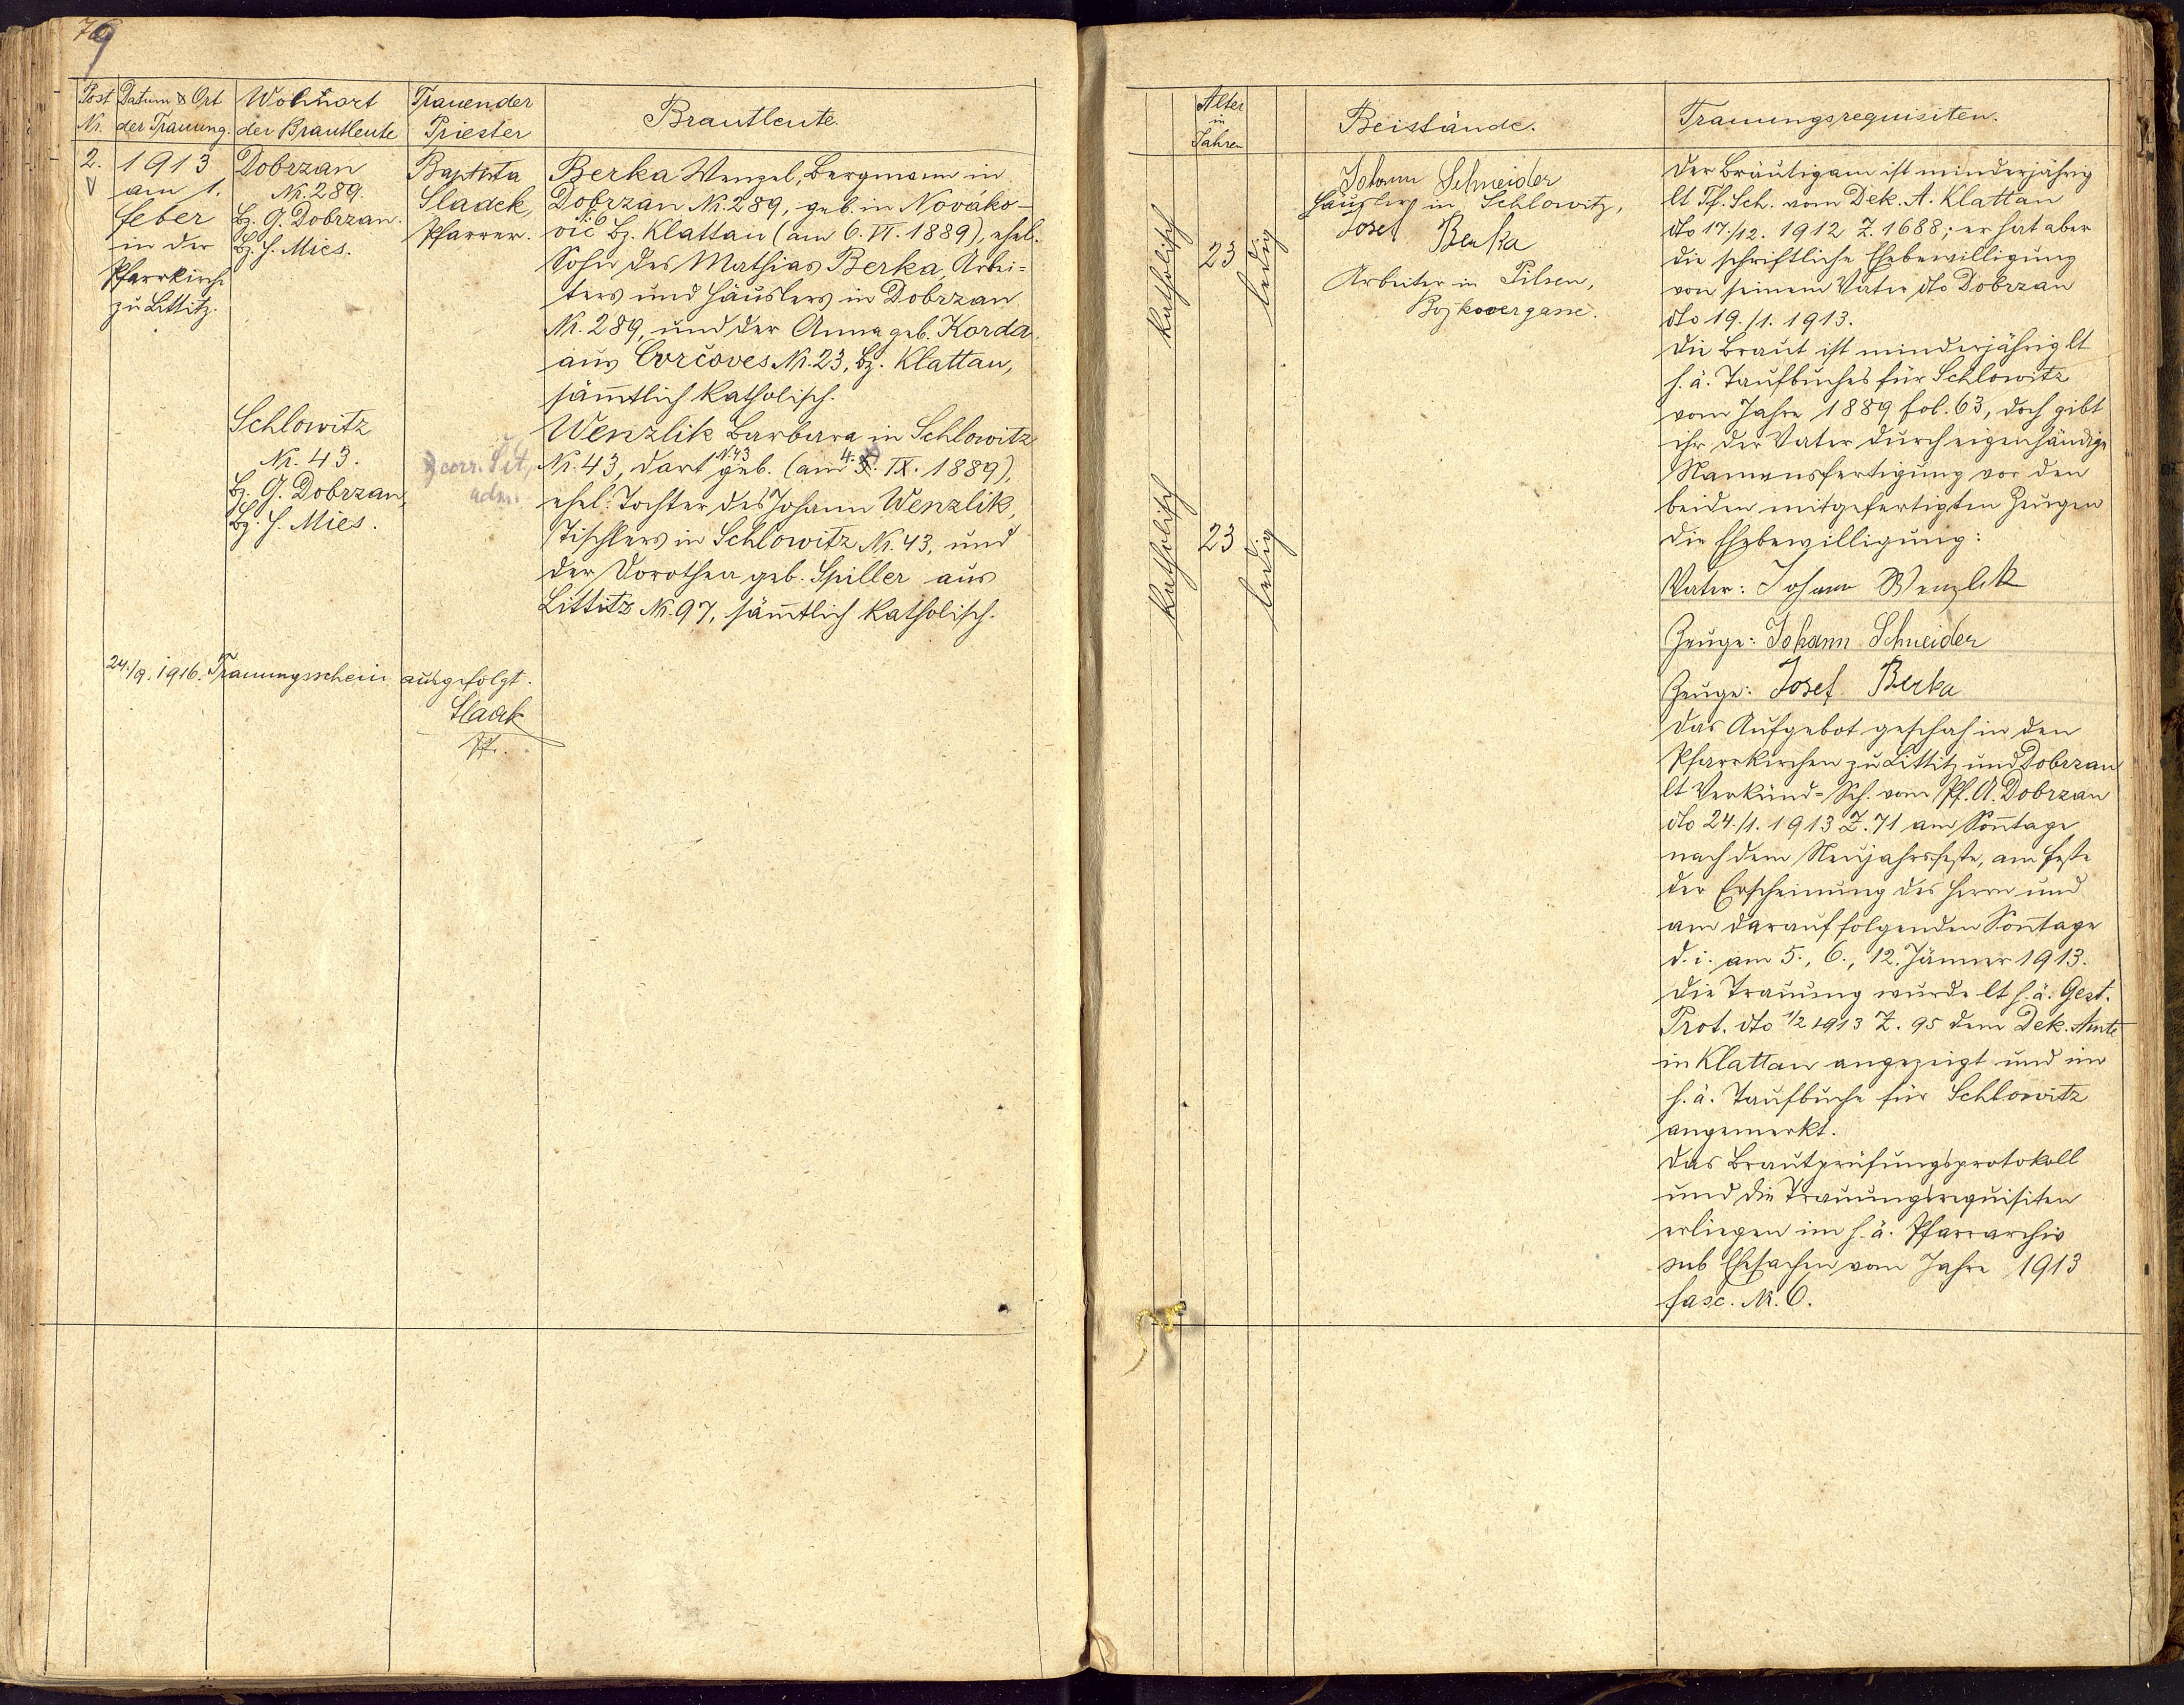 79
Post Nr.
Datum & Ort der Trauung.
Wohnort der Brautleute
Trauender Priester
Brautleute.
2.
1913
am 1.
Feber
in der
Pfarrkirche
zu Littitz.
Dobrzan
Nr. 289.
Bz. G. Dobrzan.
Bz. H. Mies.
Baptista
Sladek,
Pfarrer.
Berka Wenzel, Bergmann in
Dobrzan Nr. 289, geb. in Nováko-
vic Nr. 6 Bz. Klattau (am 6. VI. 1889), ehel.
Sohn des Mathias Berka, Arbei=
ters und Häuslers in Dobrzan
Nr. 289, und der Anna geb. Korda
aus Cvrčoves Nr. 23, Bz. Klattau,
sämtlich katholisch.
Schlowitz
Nr. 43.
Bz. G. Dobrzan,
Bz. H. Mies.
corr.
adm.
Wenzlik Barbara in Schlowitz
Nr. 43, dort N. 43 geb. (am 4. 5. IX. 1889),
ehel. Tochter des Johann Wenzlik,
Tischlers in Schlowitz Nr. 43, und
der Dorothea geb. Spiller aus
Littitz Nr. 97, sämtlich katholisch.
24./9. 1916. Trauungsschein ausgefolgt.
Sladek
Pf.
Alter in Jahren
Beistände.
Trauungsrequisiten.
katholisch
23
ledig
katholisch
23
ledig
Johann Schneider
Häusler in Schlowitz,
Josef Berka
Arbeiter in Pilsen,
Der Bräutigam ist minderjährig
lt Tf. Sch. vom Dek. A. Klattau
dto 17./12. 1912 Z. 1688; er hat aber
die schriftliche Ehebewilligung
von seinem Vater dto Dobrzan
dto 19./1. 1913.
Die Braut ist minderjährig lt
h. ä. Taufbuches für Schlowitz
vom Jahre 1889 fol. 63, doch gibt
ihr der Vater durch eigenhändige
Namensfertigung vor den
beiden mitgefertigten Zeugen
die Ehebewilligung:
Vater: Johann Wenzlik
Zeuge: Johann Schneider
Zeuge: Josef Berka
Das Aufgebot geschah in den
Pfarrkirchen zu Littitz und Dobrzan
lt Verkünd-Sch. vom Pf. A. Dobrzan
dto 24./1. 1913 Z. 71 am Sontage
nach dem Neujahrsfeste, am Feste
der Erscheinung des Herrn und
am darauffolgenden Sontage
d. i. am 5., 6., 12. Jänner 1913.
Die Trauung wurde lt h. ä. Gest.
Prot. dto 1/2 1913 Z. 95 dem Dek. Amte
in Klattau angezeigt und im
h. ä. Taufbuche für Schlowitz
angemerkt.
Das Brautprüfungsprotokoll
und die Trauungsrequisiten
erliegen im h. ä. Pfarrarchiv
sub Ehesachen vom Jahre 1913
fasc. Nr. 6.